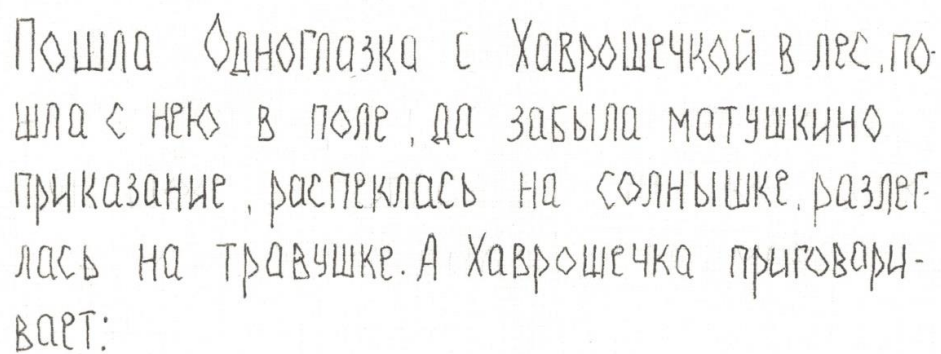 Пошла Одноглазка с Хаврошечкой в лес, по-
шла с нею в поле, да забыла матушкино
приказание, распеклась на солнышке, разлег-
лась на травушке. А Хаврошечка приговари-
вает: